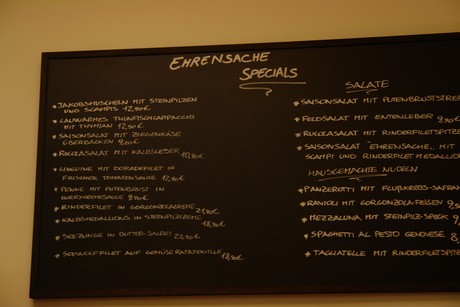 EHRENSACHE
SPECIALS
* JAKOBSMUSCHERN MIT STEINPILZEN
UND SCAMPIS 12,90€
* LAUWARMES THUNFISCHCARPACCIO
MIT THYMIAN 12,50€
* SAISONSALAT MIT ZIEGENKÄSE
ÜBERBACKEN 9,20€
* RUCOLASALAT MIT KALBSLEBER 10,90€
* LINGUINE MIT DORADEFILET IN
FRISCHER TOMATENSAUCE 12,90€
* PENNE MIT PUTENBRUST IN
9,90€
* RINDERFILET IN GORGONZOLACREME 21,90€
* KALBSMEDALLIONS IN STEINPILZCREME 18,90€
* SEEZUNGE IN BUTTER-SALBEI 22,90€
* SEEWOLFFILET AUF GEMÜSERATATOUILLE 18,90€
SALATE
* SAISONSALAT MIT PUTENBRUSTSTREI
* FELDSALAT MIT ENTENLEBER 9,20
* RUCOLASALAT MIT RINDERFILETSPITZE
* SAISONSALAT "EHRENSACHE" MIT
SCAMPI UND RINDERFILET METALLION
HAUSGEMACHTE NUDELN
* PANZEROTTI MIT FLUßKREBS-SAFRAN
* RAVIOLI MIT GORGONZOLA-FEIGEN 9,
* MEZZALUNA MIT STEINPILZ-SPECK 9,
* SPAGHETTI AL PESTO GENOVESE 8,
* TAGLIATELLE MIT RINDERFILETSPITZE